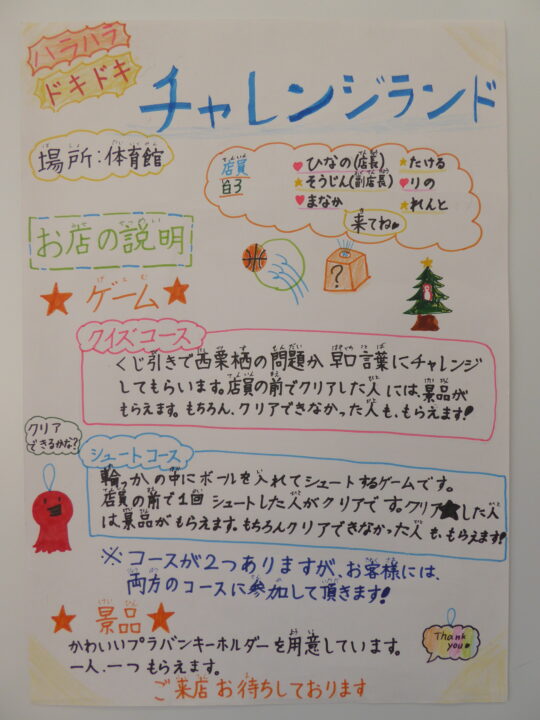 ハラハラ
ドキドキ
チャレンジランド
場所:体育館
店員
自3
♥ひなの(店長)
★たける
★そうじん(副店長)
♥りの
♥まなか
★れんと
来てね♥
お店の説明
★ゲーム★
?
クイズコース
くじ引きで西栗栖の問題か早口言葉にチャレンジ
してもらいます。店員の前でクリアした人には、景品が
もらえます。もちろん、クリアできなかった人も、もらえます!
クリア
できるかな?
シュートコース
輪っかの中にボールを入れてシュートするゲームです。
店員の前で1回シュートした人がクリアです。クリア★した人
は景品がもらえます。もちろんクリアできなかった人も、もらえます!
※コースが2つありますが、お客様には、
両方のコースに参加して頂きます!
★景品★
かわいいプラバンキーホルダーを用意しています。
一人、一つもらえます。
Thank
you♥
ご来店お待ちしております